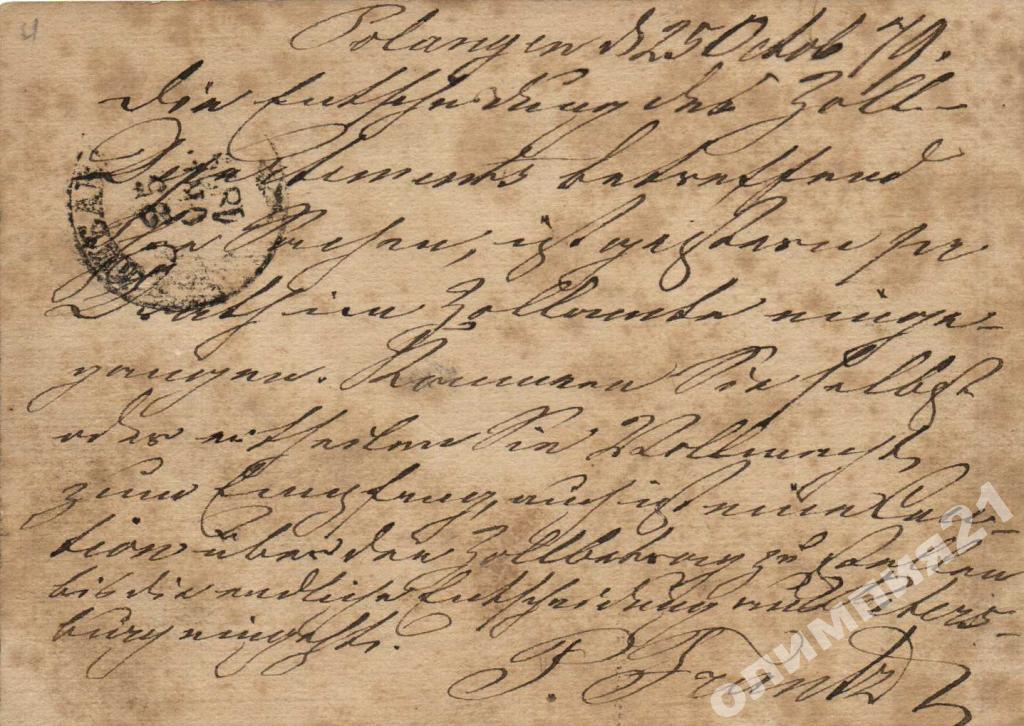 4
Polangen d. 25 Octob 79.
Die Entscheidung des Zoll-
Departements betreffend
Ihre Sachen, ist gestern pr
Drath im Zollamte einge-
gangen. Kommen Sie selbst
oder ertheilen Sie Vollmacht
zum Empfang, auch ist eine Cau-
tion über den Zollbetrag zu
bis die endliche Entscheidung aus Peters-
burg eingeht.
P. Frentz
олимпия21